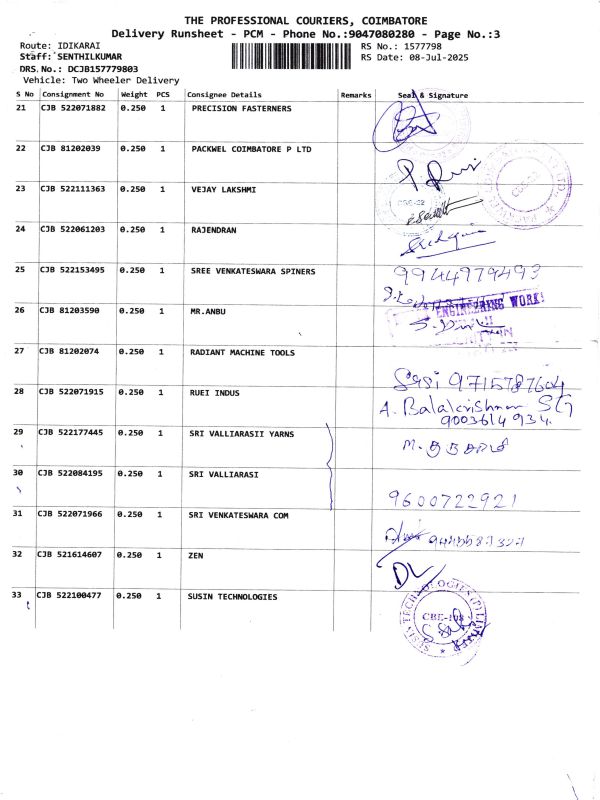 THE PROFESSIONAL COURIERS, COIMBATORE
Delivery Runsheet - PCM - Phone No.:9047080280 - Page No.:3
Route: IDIKARAI
RS No.: 1577798
Staff: SENTHILKUMAR
RS Date: 08-Jul-2025
DRS.No.: DCJB157779803
Vehicle: Two Wheeler Delivery
S No Consignment No Weight PCS Consignee Details Remarks Seal & Signature
21 CJB 522071882 0.250 1 PRECISION FASTERNERS
22 CJB 81202039 0.250 1 PACKWEL COIMBATORE P LTD
23 CJB 522111363 0.250 1 VEJAY LAKSHMI
24 CJB 522061203 0.250 1 RAJENDRAN
25 CJB 522153495 0.250 1 SREE VENKATESWARA SPINERS 9944979493
26 CJB 81203590 0.250 1 MR.ANBU ENGINEERING WORK
27 CJB 81202074 0.250 1 RADIANT MACHINE TOOLS
Sasi 9715787604
28 CJB 522071915 0.250 1 RUEI INDUS A. Balakrishnan
9003614934
29 CJB 522177445 0.250 1 SRI VALLIARASII YARNS
30 CJB 522084195 0.250 1 SRI VALLIARASI
9600722921
31 CJB 522071966 0.250 1 SRI VENKATESWARA COM
32 CJB 521614607 0.250 1 ZEN
33 CJB 522100477 0.250 1 SUSIN TECHNOLOGIES
SUSIN TECHNOLOGIES (P) LIMITED